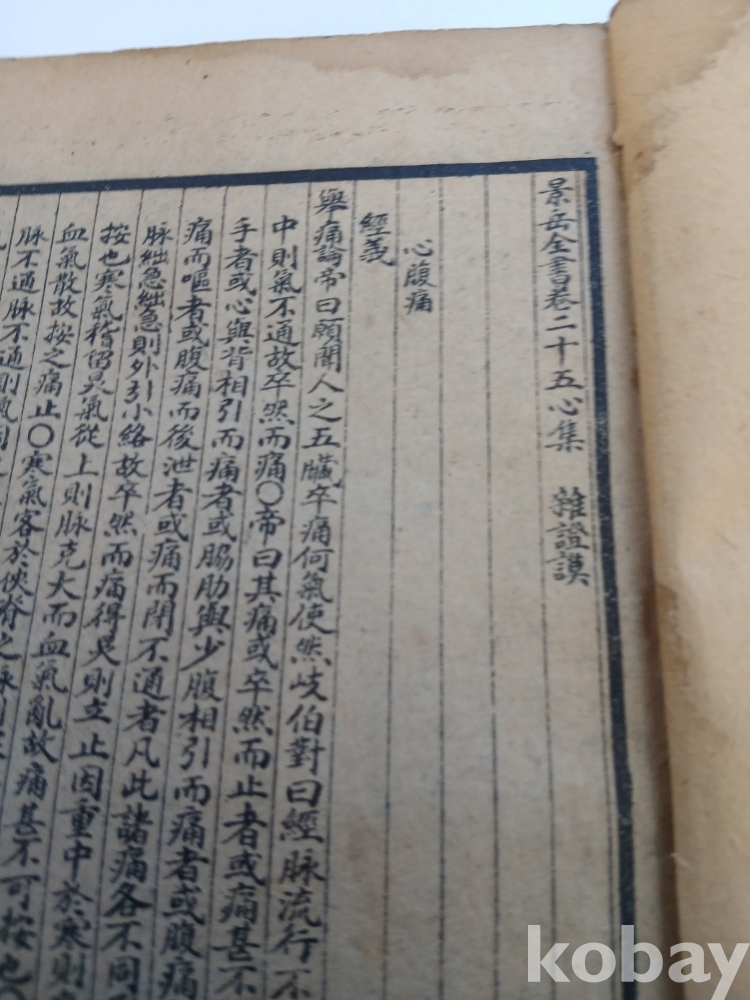 景岳全書卷二十五心集 雜證謨
心腹痛
經義
舉痛論帝曰願聞人之五臟卒痛何氣使然岐伯對曰經脉流行不
中則氣不通故卒然而痛〇帝曰其痛或卒然而止者或痛甚不
手者或心與背相引而痛者或脇肋與少腹相引而痛者或腹痛
痛而嘔者或腹痛而後泄者或痛而閉不通者凡此諸痛各不同
脉絀急絀急則外引小絡故卒然而痛得炅則立止因重中於寒則
按也寒氣稽留炅氣從上則脉充大而血氣亂故痛甚不可按也〇
血氣散故按之痛止〇寒氣客於俠脊之脉則
脉不通脉不通則氣因之
kobay